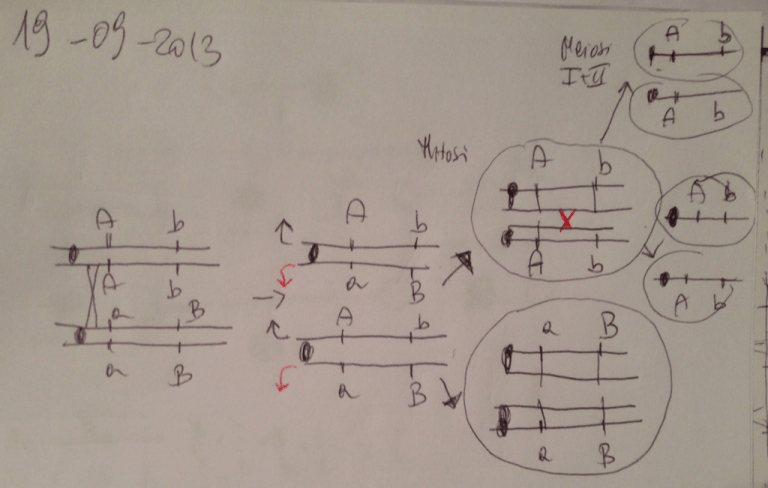 19-09-2013
Meiosi
I+II
A b
A b
Mitosi
A b
A b
A b
A b
A b
A b
a B
a B
A b
a B
A b
a B
a B
a B
X